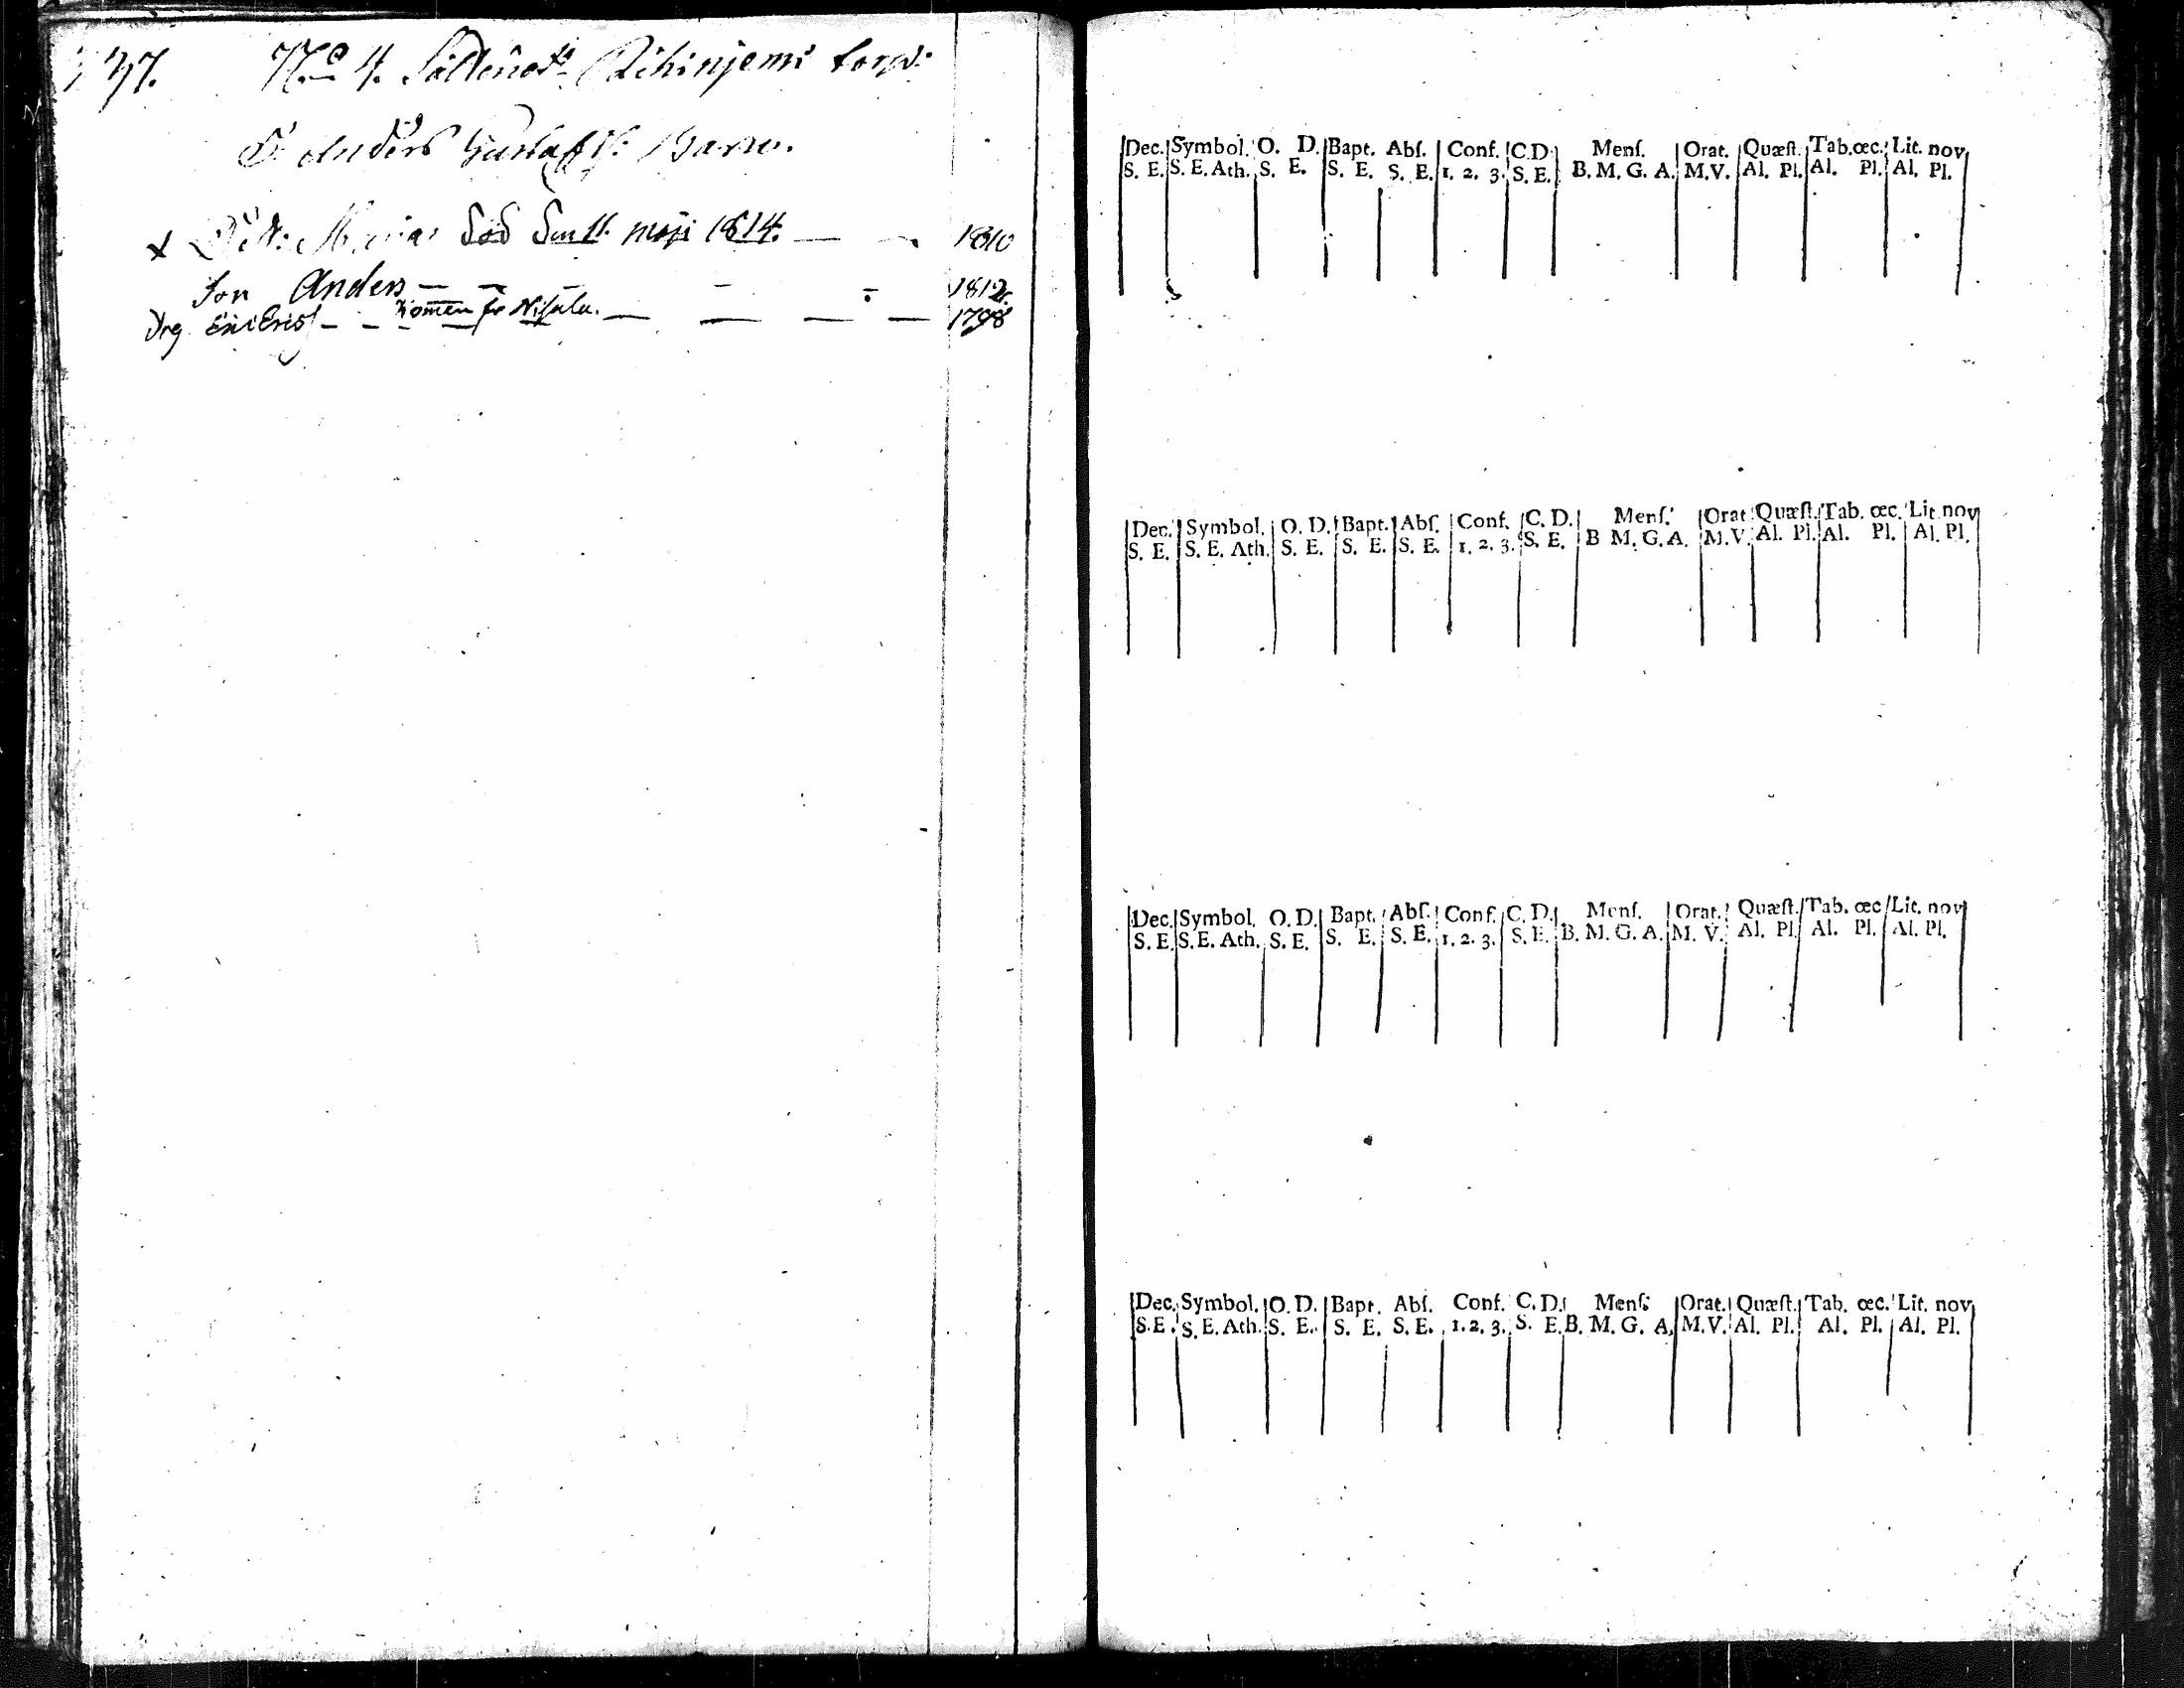 137. No 4. Rihinjemi torp:
Anders Gustafs: Barn.
Maria död den 11 maji 1814. — 1810
Son Anders — — — — 1812.
Drg Eric Erics. — Komen fr Nisula. — — — — 1798
Dec. Symbol. O. D. Bapt. Abſ. Conf. C.D. Menſ. Orat. Quæſt. Tab.œc. Lit. nov
S. E. S. E. Ath. S. E. S. E. S. E. 1. 2. 3. S. E. B. M. G. A. M.V. Al. Pl. Al. Pl. Al. Pl.
Dec. Symbol. O. D. Bapt. Abſ. Conf. C. D. Menſ. Orat Quæſt. Tab. œc. Lit. nov
S. E. S. E. Ath. S. E. S. E. S. E. 1. 2. 3. S. E. B M. G. A. M.V. Al. Pl. Al. Pl. Al. Pl.
Dec. Symbol. O. D. Bapt. Abſ. Conf. C. D. Menſ. Orat. Quæſt. Tab. œc Lit. nov
S. E. S. E. Ath. S. E. S. E. S. E. 1. 2. 3. S. E. B. M. G. A. M. V. Al. Pl. Al. Pl. Al. Pl.
Dec. Symbol. O. D. Bapt. Abſ. Conf. C. D. Menſ. Orat. Quæſt. Tab. œc. Lit. nov
S. E. S. E. Ath. S. E. S. E. S. E. 1. 2. 3. S. E. B. M. G. A. M. V. Al. Pl. Al. Pl. Al. Pl.